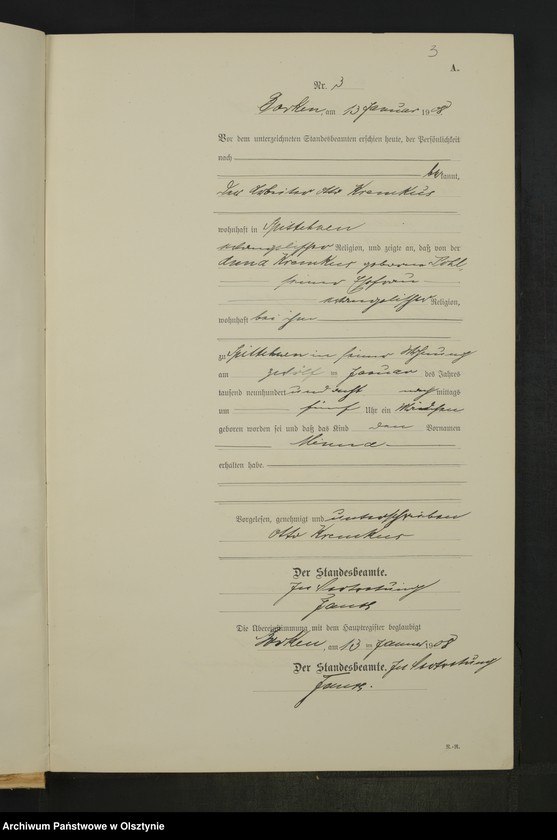 3
A.
Nr. 3
Borken, am 13 Januar 1908
Vor dem unterzeichneten Standesbeamten erschien heute, der Persönlichkeit
nach
bekannt,
der Arbeiter Otto Kremkus
wohnhaft in Spittehnen
evangelischer Religion, und zeigte an, daß von der
Anna Kremkus geborene
seiner Ehefrau
evangelischer Religion,
wohnhaft bei ihm
zu Spittehnen in seiner Wohnung
am zwölf ten Januar des Jahres
tausend neunhundert und acht nachmittags
um fünf Uhr ein Mädchen
geboren worden sei und daß das Kind den Vornamen
Minna
erhalten habe.
Vorgelesen, genehmigt und unterschrieben
Otto Kremkus
Der Standesbeamte.
In Vertretung
Die Übereinstimmung mit dem Hauptregister beglaubigt
Borken, am 13 ten Januar 1908
Der Standesbeamte. In Vertretung
Archiwum Państwowe w Olsztynie